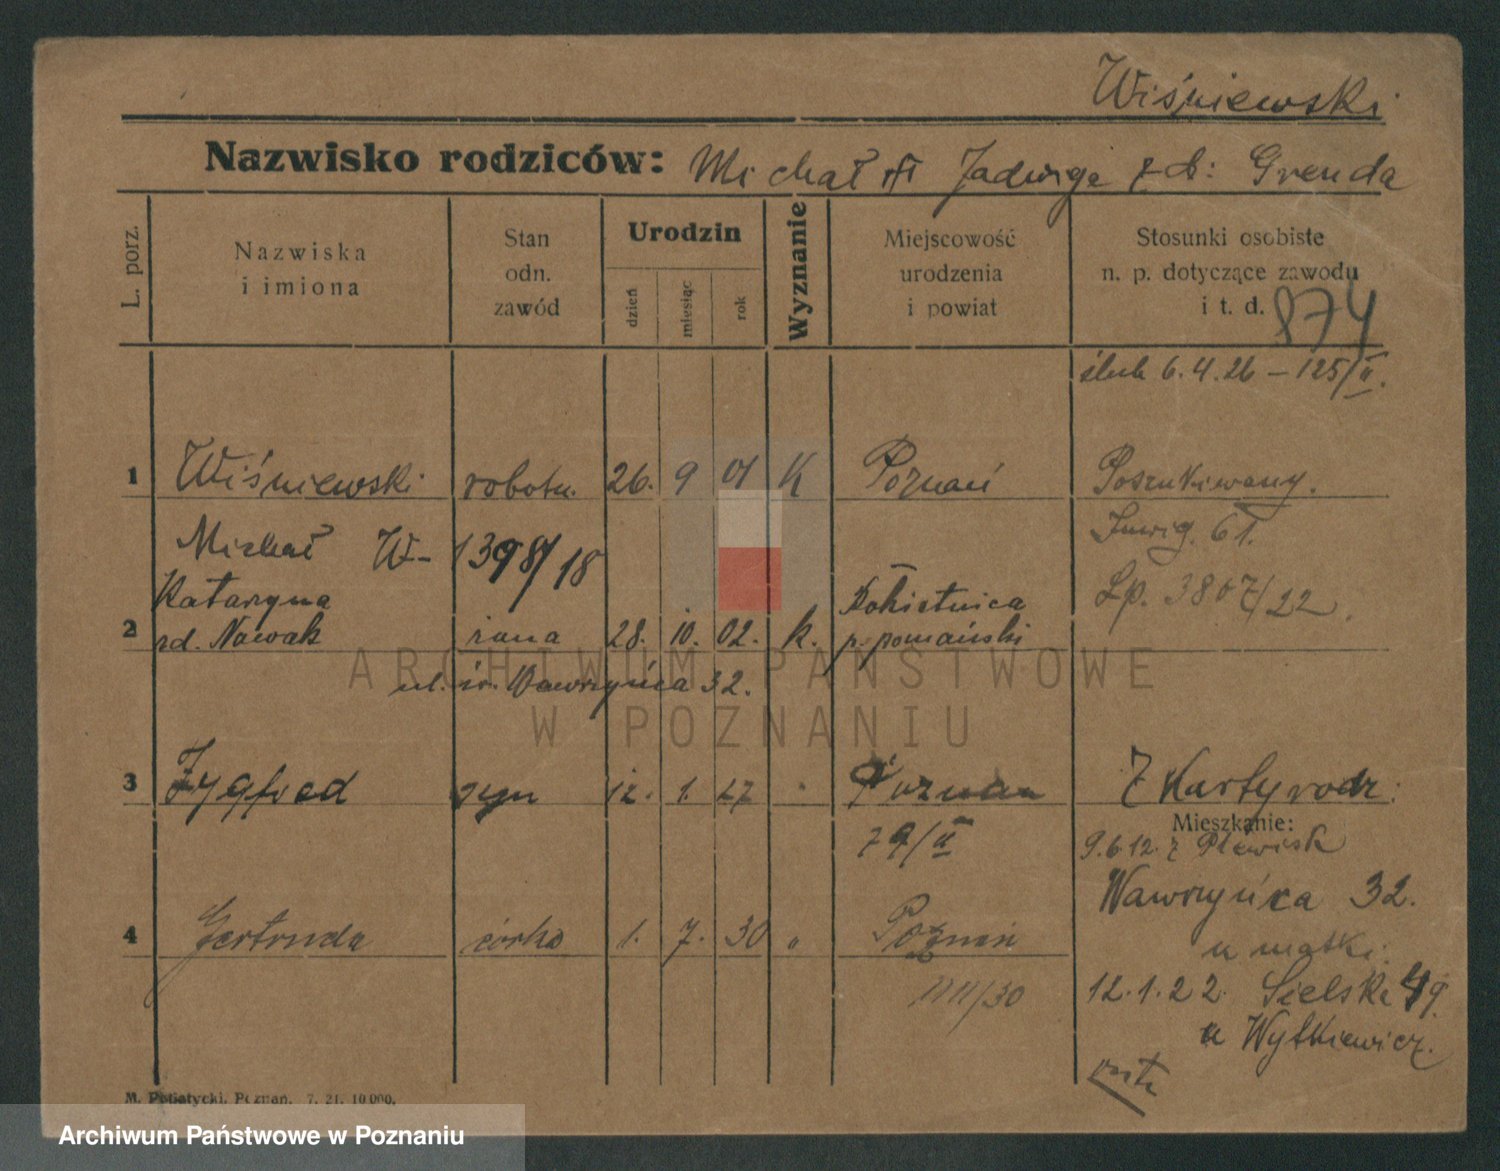 Wiśniewski
Nazwisko rodziców: Michał Jadwiga z d: Grenda
L. porz.
Nazwiska i imiona
Stan odn. zawód
Urodzin
dzień
miesiąc
rok
Wyznanie
Miejscowość urodzenia i powiat
Stosunki osobiste n. p. dotyczące zawodu i t. d.
874
ślub 6.4.26 – 125/II.
1 Wiśniewski robotn. 26. 9 01 K Poznań Poszukiwany.
Michał W- 1398/18 61.
Katarzyna Kobielnica Lp. 3807/22.
2 rd. Nowak żona 28. 10. 02. k. p. poznański
ul. św. Wawrzyńca 32.
ARCHIWUM PAŃSTWOWE
W POZNANIU
3 Zygfred syn 12. 1. 27 Poznan Z Karty rodz:
Mieszkanie:
79/II 9.6.12. z Plewisk
Wawrzyńca 32.
4 Gertruda córka 1. 7. 30 " Poznań u matki.
1111/30 12.1.22 Sielska 49.
u Wytkiewicz.
M. Putiatycki, Poznań. 7. 21. 10 000.
Archiwum Państwowe w Poznaniu